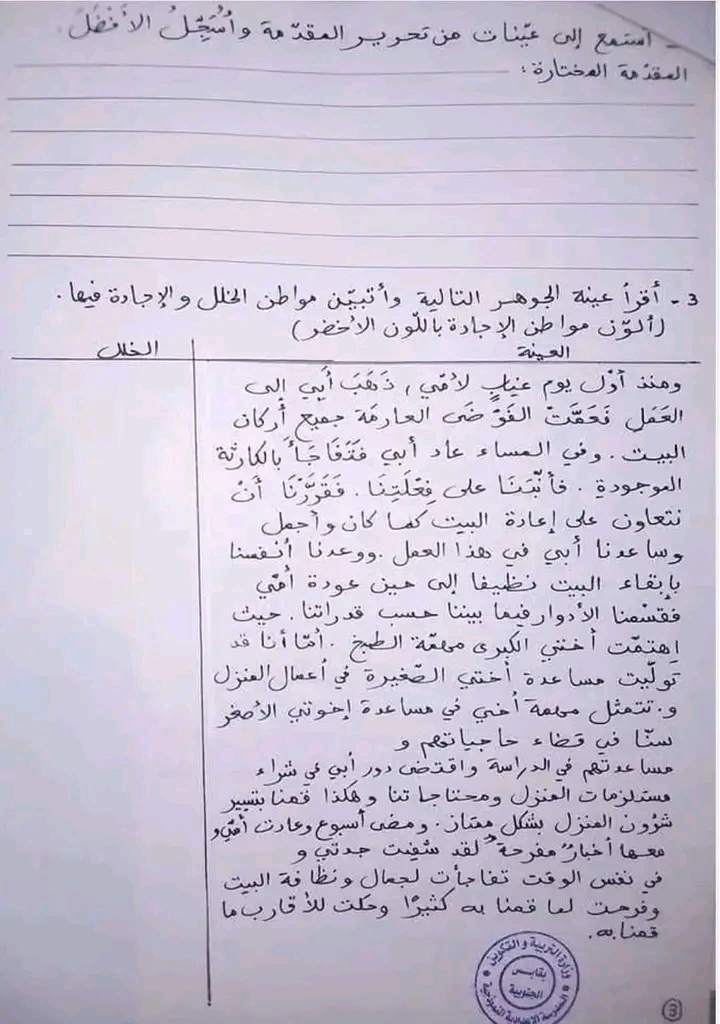 - استمع إلى عيّنات من تحرير المقدّمة وأُسَجِّلُ الأَفْضَلَ.
المقدّمة المختارة:
3- أقرأ عينة الجوهر التالية وأتبيّن مواطن الخلل والإجادة فيها.
(ألوّن مواطن الإجادة باللّون الأخضر)
العينة
الخلل
ومنذ أوّل يوم غيابٍ لأمّي، ذَهَبَ أَبِي إلى
العَمَلِ فَعَمَّتْ الفَوْضَى العارمَة جميع أركان
البيت. وفي المساء عاد أبي فَتَفَاجَأَ بالكارثة
الموجودة. فأنّبَنَا على فِعْلَتِنَا. فَقَرَّرْنَا أنْ
نتعاون على إعادة البيت كما كان وأجمل
وساعدنا أبي في هذا العمل. ووعدنا أنفسنا
بإبقاء البيت نظيفا إلى حين عودة أمّي
فقسّمنا الأدوار فيما بيننا حسب قدراتنا. حيث
اِهتمّت أختي الكبرى مهمّة الطبخ. أمّا أنا قد
تولّيت مساعدة أختي الصّغيرة في أعمال المنزل
و. تتمثل مهمة أخي في مساعدة إخوتي الأصغر
سنّا في قضاء حاجياتهم و
مساعدتهم في الدراسة واقتضى دور أبي في شراء
مستلزمات المنزل ومحتاجاتنا وهكذا قمنا بتسيير
شؤون المنزل بشكل ممتاز. ومضى أسبوع وعادت أمّي و
معها أخبارٌ مفرحة "لقد شفيت جدتي و
في نفس الوقت تفاجأت لجمال ونظافة البيت
وفرحت لما قمنا به كثيرًا وحكت للأقارب ما
قمنا به.
وزارة التربية والتكوين
بقابس
الجنوبية
المدرسة الإعدادية النموذجية
3